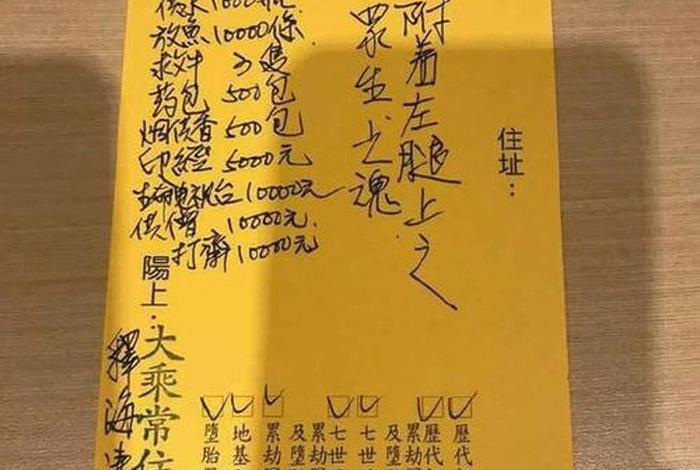 住址：
附着左腿上之
眾生之魂
放魚10000條
药包 500包
烟供香 500包
印經 5000元
生命電視台10000元
供僧 10000元
打齋10000元
陽上：大乘常住
釋海
歷代
歷代
累劫
及墮
七世
七世
累劫
及墮
累劫
地基
墮胎